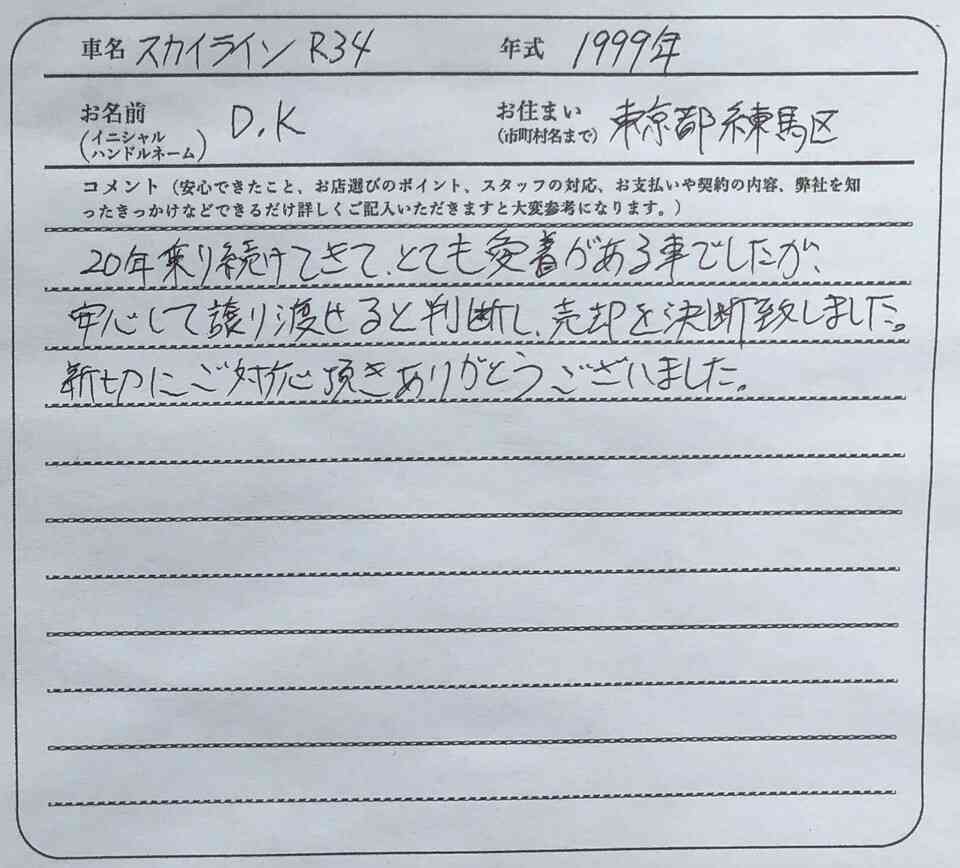 車名 スカイライン R34 年式 1999年
お名前 (イニシャル ハンドルネーム) D.K お住まい (市町村名まで) 東京都練馬区
コメント（安心できたこと、お店選びのポイント、スタッフの対応、お支払いや契約の内容、弊社を知
ったきっかけなどできるだけ詳しくご記入いただきますと大変参考になります。）
20年乗り続けてきて、とても愛着がある事でしたが、
安心して譲り渡せると判断し、売却を決断致しました。
親切にご対応頂きありがとうございました。